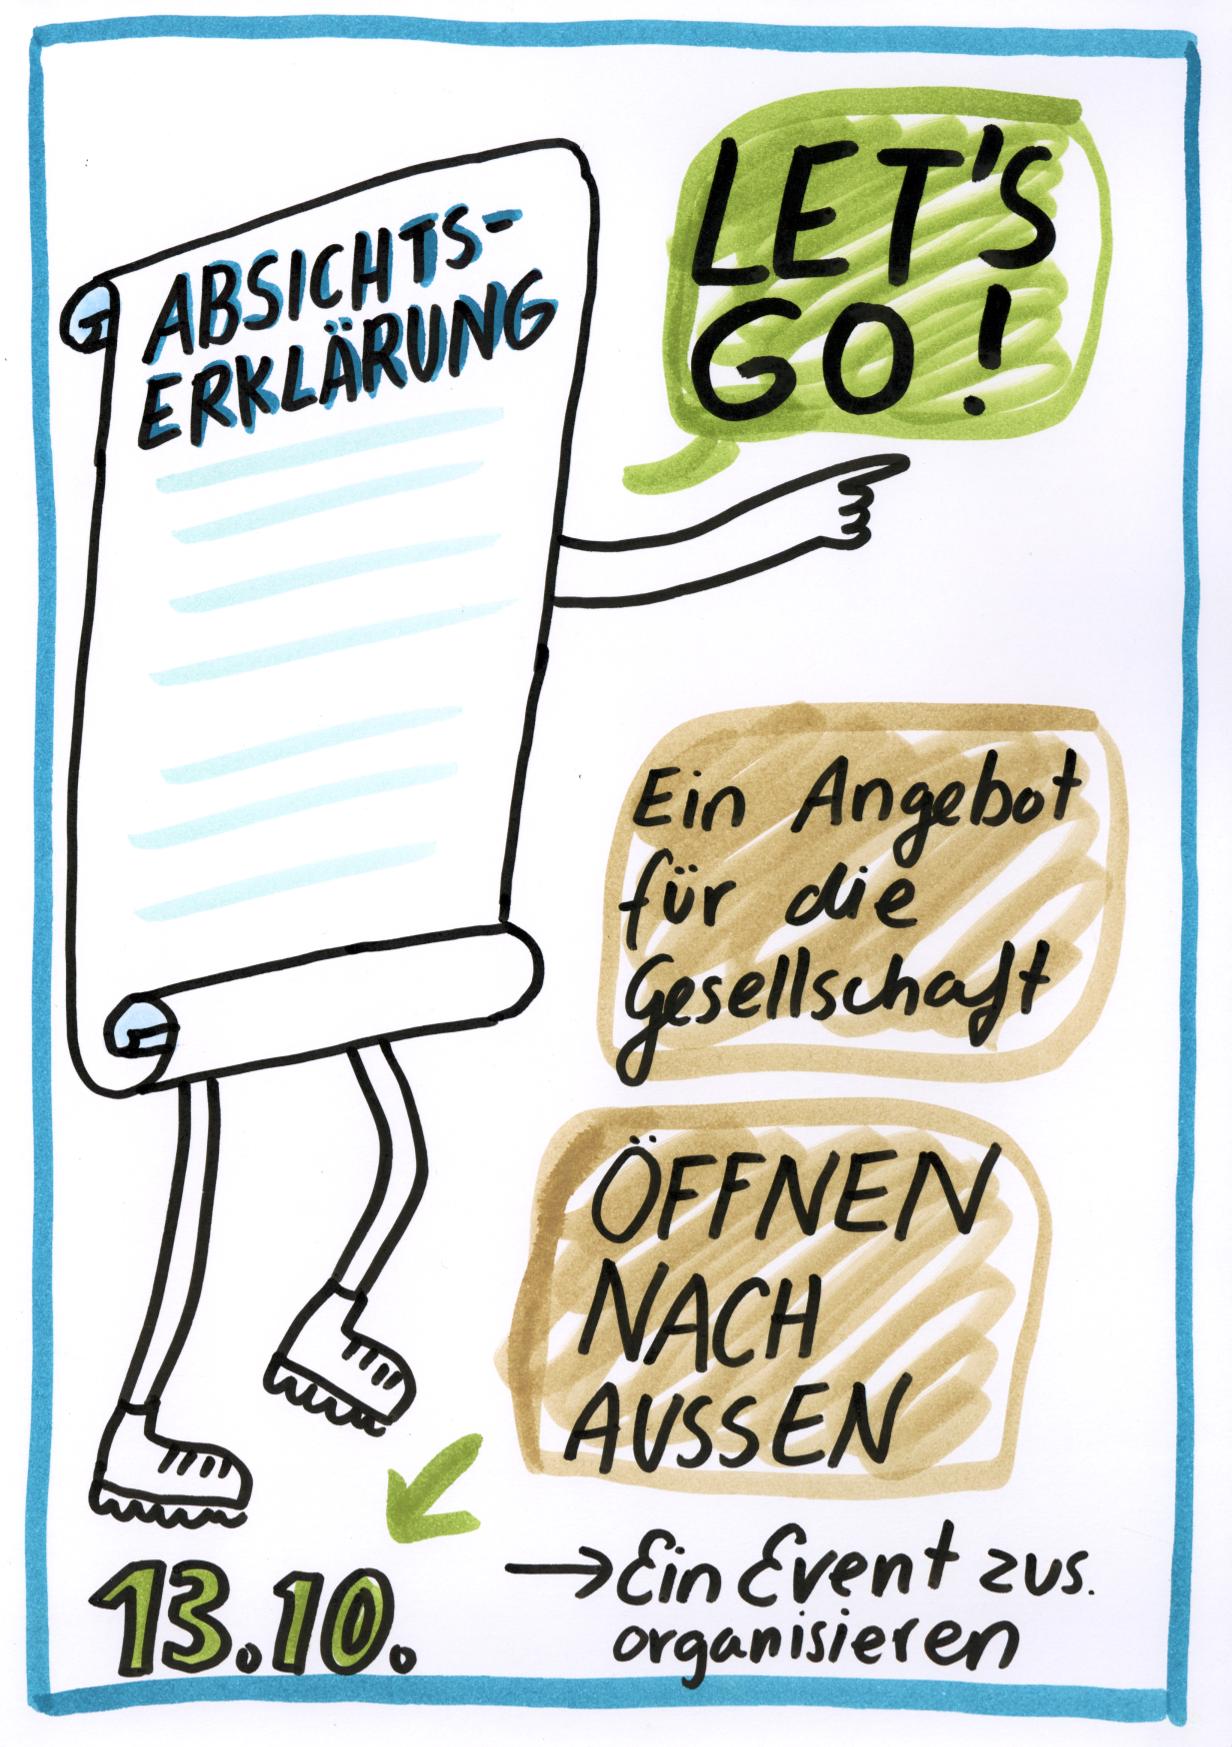 ABSICHTS-
ERKLÄRUNG
LET'S
GO!
Ein Angebot
für die
Gesellschaft
ÖFFNEN
NACH
AUSSEN
→ Ein Event zus.
organisieren
13.10.